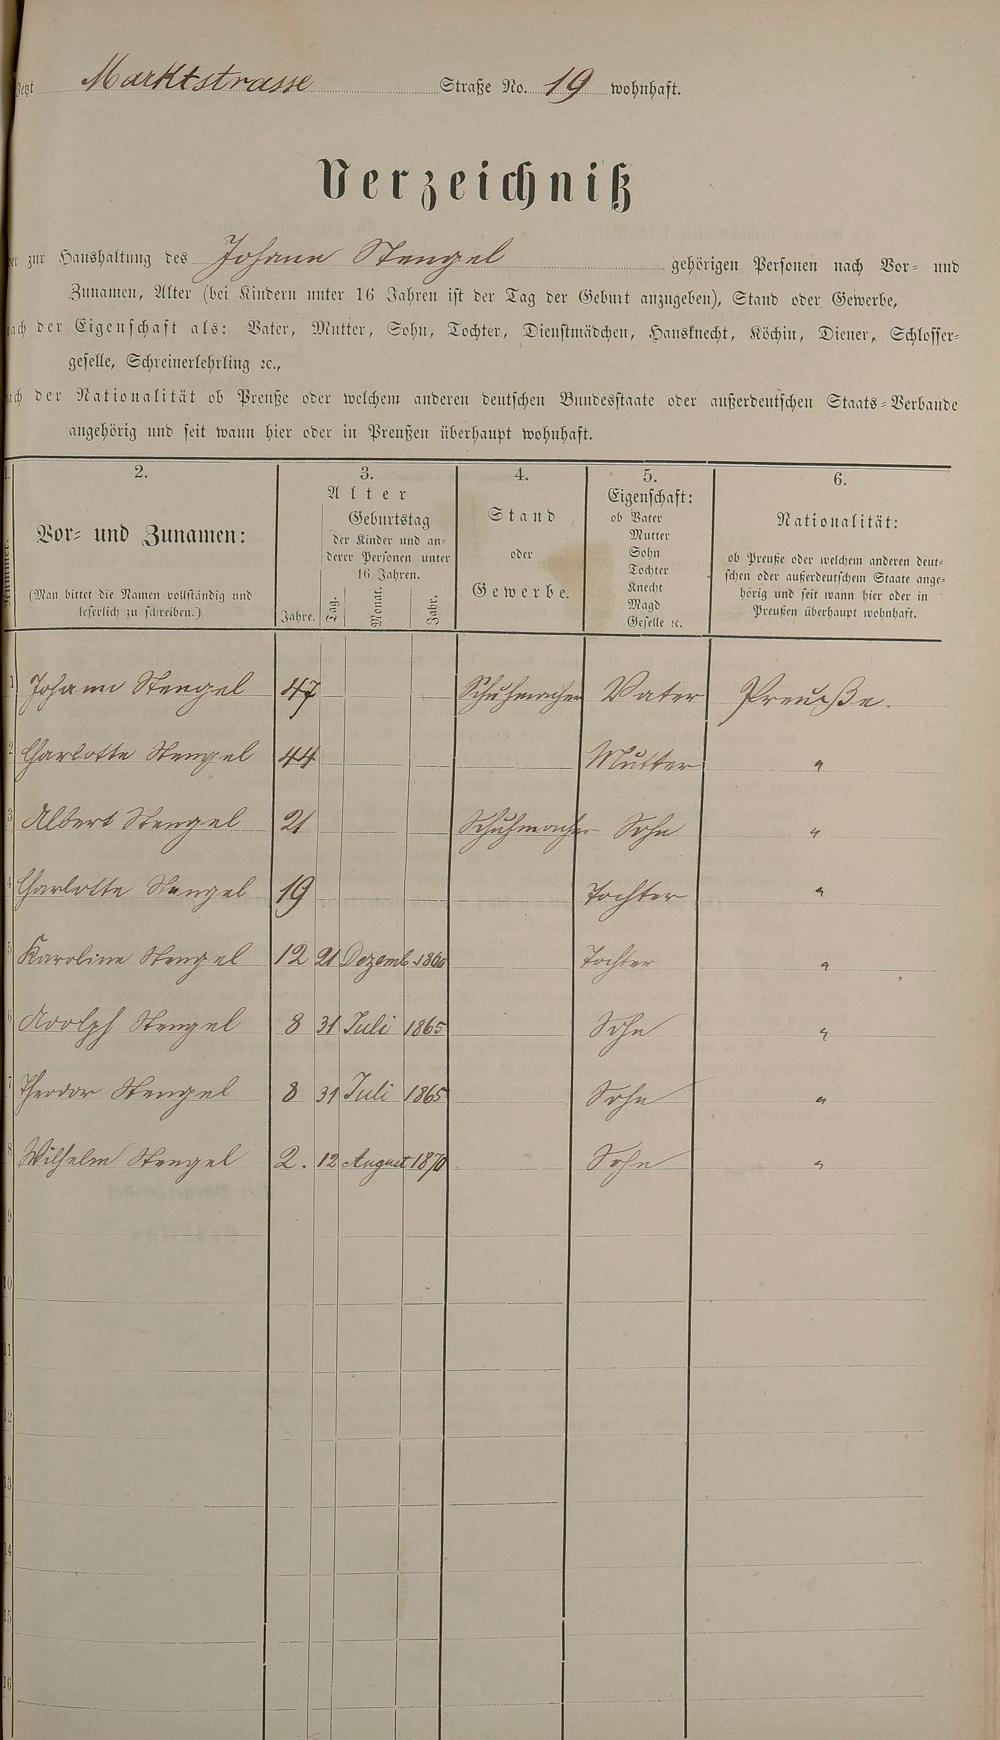 Jetzt Marktstrasse Straße No. 19 wohnhaft.
Verzeichniß
der zur Haushaltung des Johann Stengel gehörigen Personen nach Vor- und
Zunamen, Alter (bei Kindern unter 16 Jahren ist der Tag der Geburt anzugeben), Stand oder Gewerbe,
nach der Eigenschaft als: Vater, Mutter, Sohn, Tochter, Dienstmädchen, Hausknecht, Köchin, Diener, Schlosser-
geselle, Schreinerlehrling ꝛc.,
nach der Nationalität ob Preuße oder welchem anderen deutschen Bundesstaate oder außerdeutschen Staats-Verbande
angehörig und seit wann hier oder in Preußen überhaupt wohnhaft.
1. 2. 3. 4. 5. 6.
Nummer.
Vor- und Zunamen:
(Man bittet die Namen vollständig und
leserlich zu schreiben.)
Alter
Jahre.
Geburtstag
der Kinder und an-
derer Personen unter
16 Jahren.
Tag. Monat. Jahr.
Stand
oder
Gewerbe.
Eigenschaft:
ob Vater
Mutter
Sohn
Tochter
Knecht
Magd
Geselle ꝛc.
Nationalität:
ob Preuße oder welchem anderen deut-
schen oder außerdeutschem Staate ange-
hörig und seit wann hier oder in
Preußen überhaupt wohnhaft.
1 Johann Stengel 47 Schuhmacher Vater Preuße.
2 Charlotte Stengel 44 Mutter "
3 Albert Stengel 21 Schuhmacher Sohn "
4 Charlotte Stengel 19 Tochter "
5 Karoline Stengel 12 21 Dezemb. 1860 Tochter "
6 Adolph Stengel 8 31 Juli 1865 Sohn "
7 Theodor Stengel 8 31 Juli 1865 Sohn "
8 Wilhelm Stengel 2. 12 August 1870 Sohn "
9
10
11
12
13
14
15
16